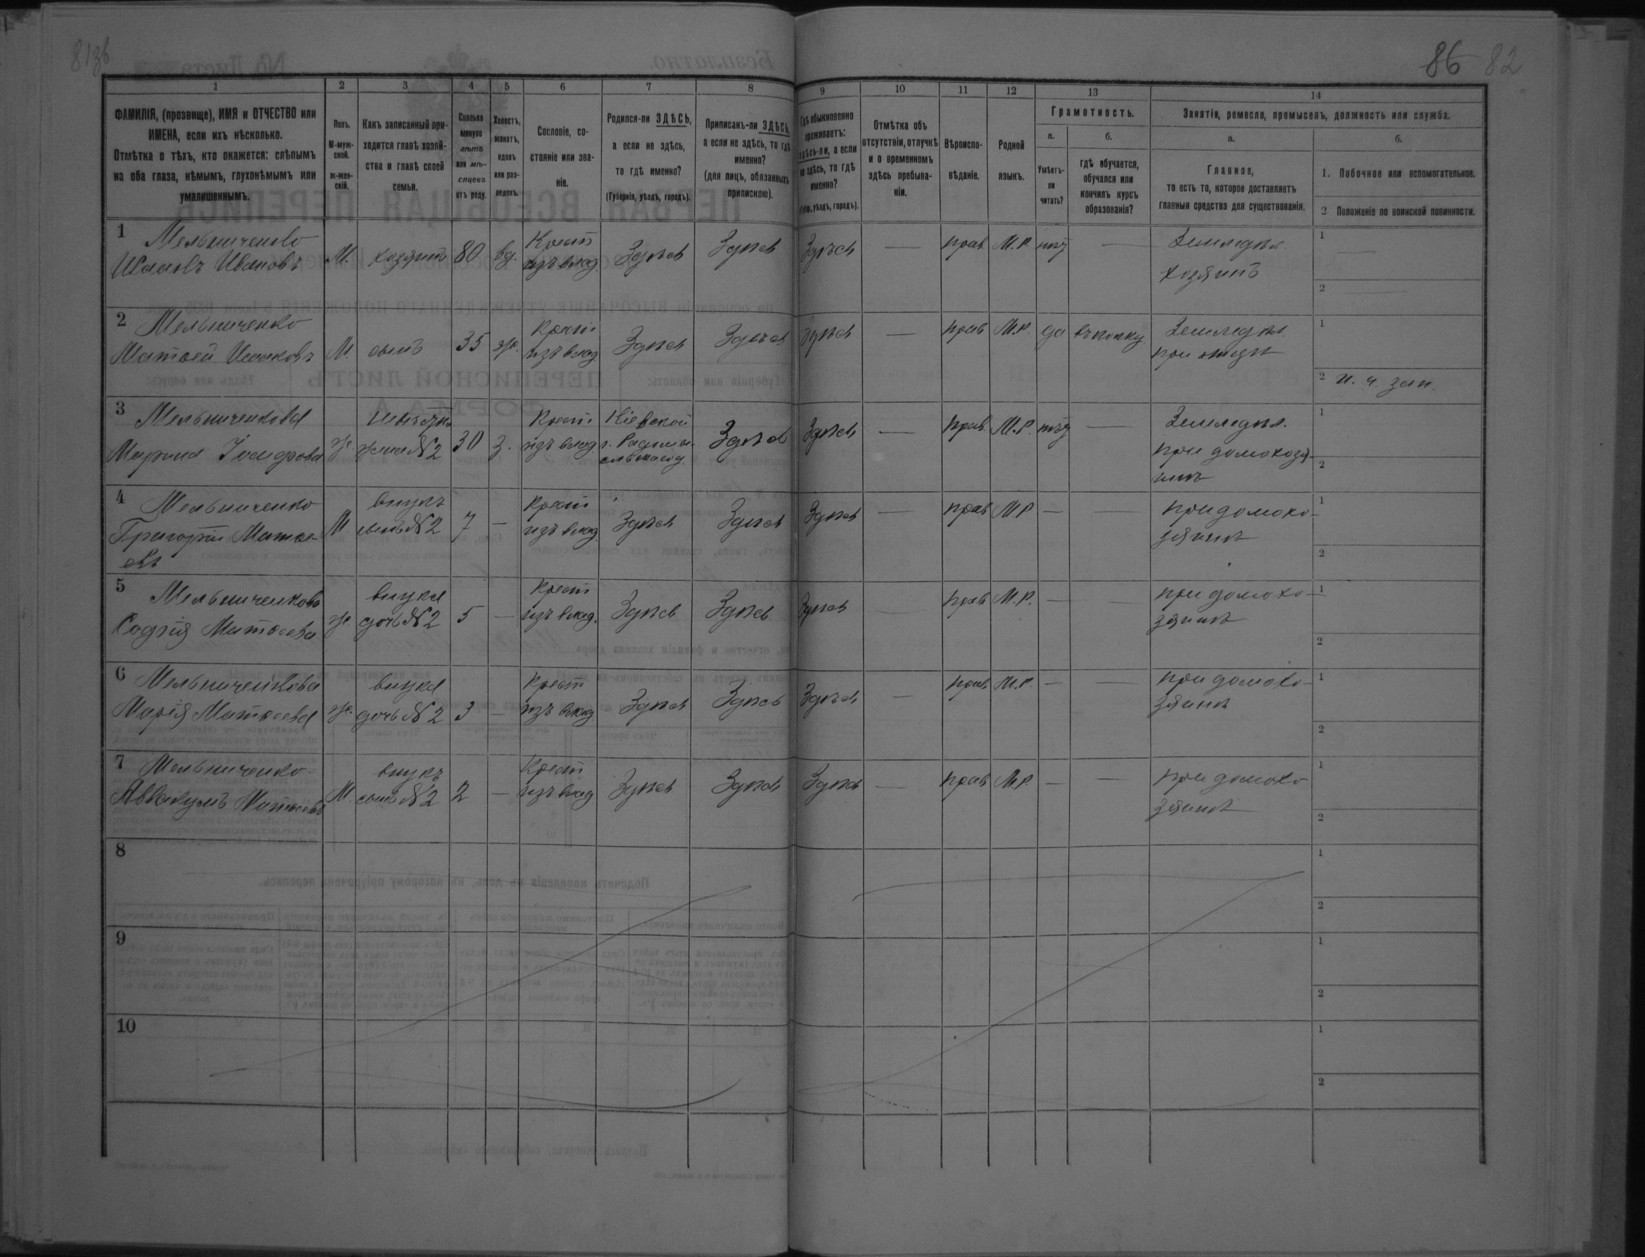 81об
86 82
1 2 3 4 5 6 7 8 9 10 11 12 13 14
ФАМИЛІЯ, (прозвище), ИМЯ и ОТЧЕСТВО или
ИМЕНА, если ихъ нѣсколько.
Отмѣтка о тѣхъ, кто окажется: слѣпымъ
на оба глаза, нѣмымъ, глухонѣмымъ или
умалишеннымъ.
Полъ.
М-муж-
ской.
ж-жен-
скій.
Какъ записанный при-
ходится главѣ хозяй-
ства и главѣ своей
семьи.
Сколько
минуло
лѣтъ
или мѣ-
сяцевъ
отъ роду.
Холостъ,
женатъ,
вдовъ
или раз-
веденъ.
Сословіе, со-
стояніе или зва-
ніе.
Родился-ли ЗДѢСЬ,
а если не здѣсь,
то гдѣ именно?
(Губернія, уѣздъ, городъ).
Приписанъ-ли ЗДѢСЬ,
а если не здѣсь, то гдѣ
именно?
(для лицъ, обязанныхъ
припискою).
Гдѣ обыкновенно
проживаетъ:
здѣсь-ли, а если
не здѣсь, то гдѣ
именно?
(Губ., уѣздъ, городъ).
Отмѣтка объ
отсутствіи, отлучкѣ
и о временномъ
здѣсь пребыва-
ніи.
Вѣроиспо-
вѣданіе.
Родной
языкъ.
Грамотность.
а.
Умѣетъ-
ли
читать?
б.
гдѣ обучается,
обучался или
кончилъ курсъ
образованія?
Занятіе, ремесло, промыселъ, должность или служба.
а.
Главное,
то есть то, которое доставляетъ
главныя средства для существованія.
б.
1. Побочное или вспомогательное.
2 Положеніе по воинской повинности.
1 Мельниченко
Исаакъ Ивановъ М. хозяинъ 80 вд. Крест изъ влад Здѣсь Здѣсь Здѣсь — прав М.Р. нѣт — Земледѣл. хозяинъ
1 —
2 —
2 Мельниченко
Матвей Исааковъ М. сынъ 35 ж. Крест изъ влад Здѣсь Здѣсь Здѣсь — прав М.Р. да Земледѣл. при отцѣ
1
2 н. ч. зап.
3 Мельниченкова
Марина ж. невѣстка жена №2 30 з. Крест изъ влад Кіевской г. Здѣсь Здѣсь — прав М.Р. нѣт — Земледѣл. при домохозя-
инѣ
1
2
4 Мельниченко
Григорій Матвѣ-
евъ М внукъ сынъ №2 7 — Крест изъ влад Здѣсь Здѣсь Здѣсь — прав М.Р — — при домохо-
зяинѣ
1
2
5 Мельниченкова
Матвѣева ж внука дочь №2 5 — Крест изъ влад. Здѣсь Здѣсь Здѣсь — прав М.Р. — — при домохо-
зяинѣ
1
2
6 Мельниченкова
Марія Матвѣева ж. внука дочь №2 3 — Крест изъ влад Здѣсь Здѣсь Здѣсь — прав М.Р. — — при домохо-
зяинѣ
1
2
7 Мельниченко
Аввакумъ Матвѣевъ М внукъ сынъ №2 2 — Крест изъ влад Здѣсь Здѣсь Здѣсь — прав М.Р. — — при домохо
зяинѣ
1
2
8
1
2
9
1
2
10
1
2